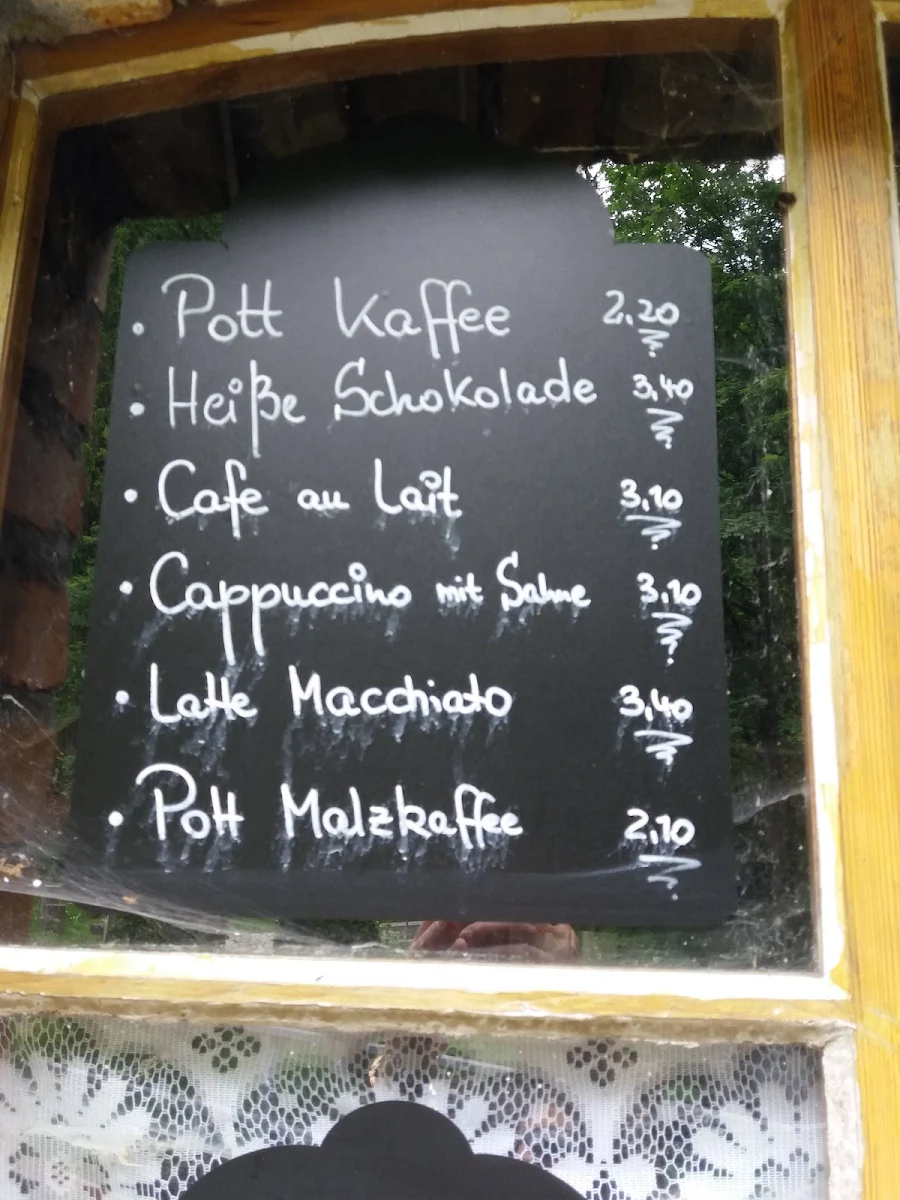 • Pott Kaffee 2,20
• Heiße Schokolade 3,40
• Cafe au Lait 3,10
• Cappuccino mit Sahne 3,10
• Latte Macchiato 3,40
• Pott Malzkaffee 2,10